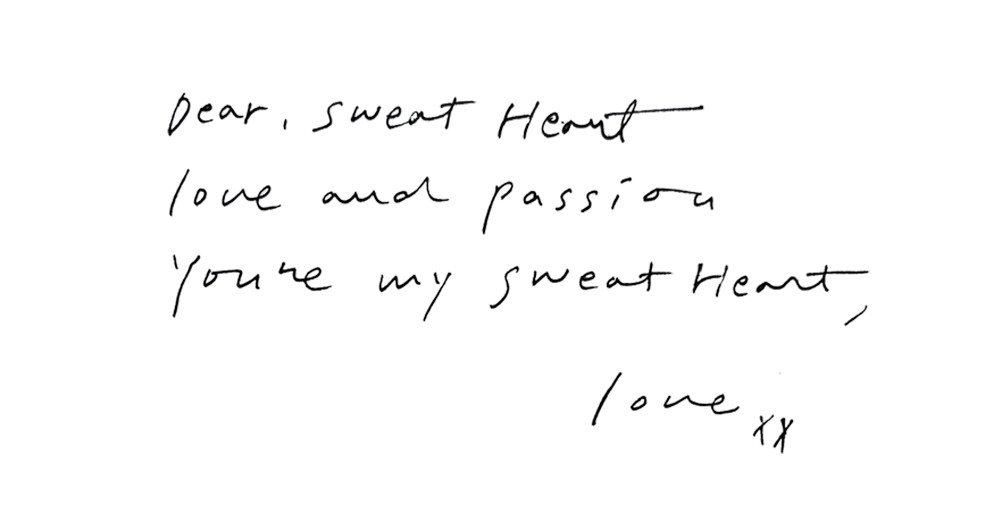 Dear, sweat Heart
love and passion
You're my sweat Heart,
love xx